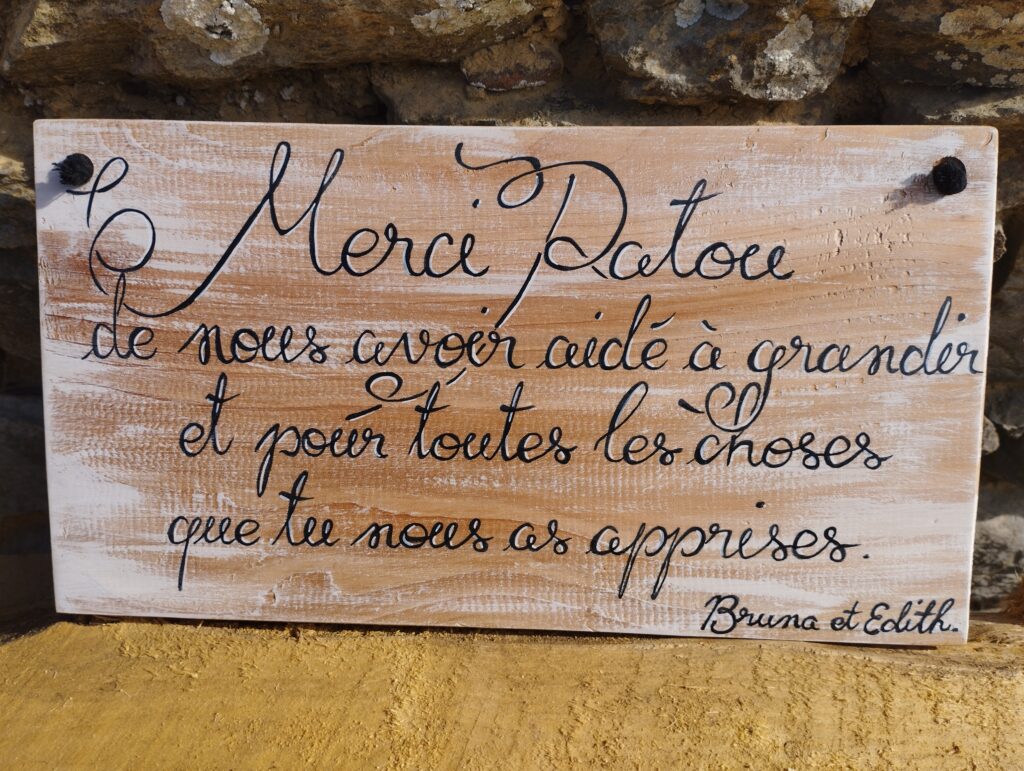 Merci Patou
de nous avoir aidé à grandir
et pour toutes les choses
que tu nous as apprises.
Bruna et Edith.